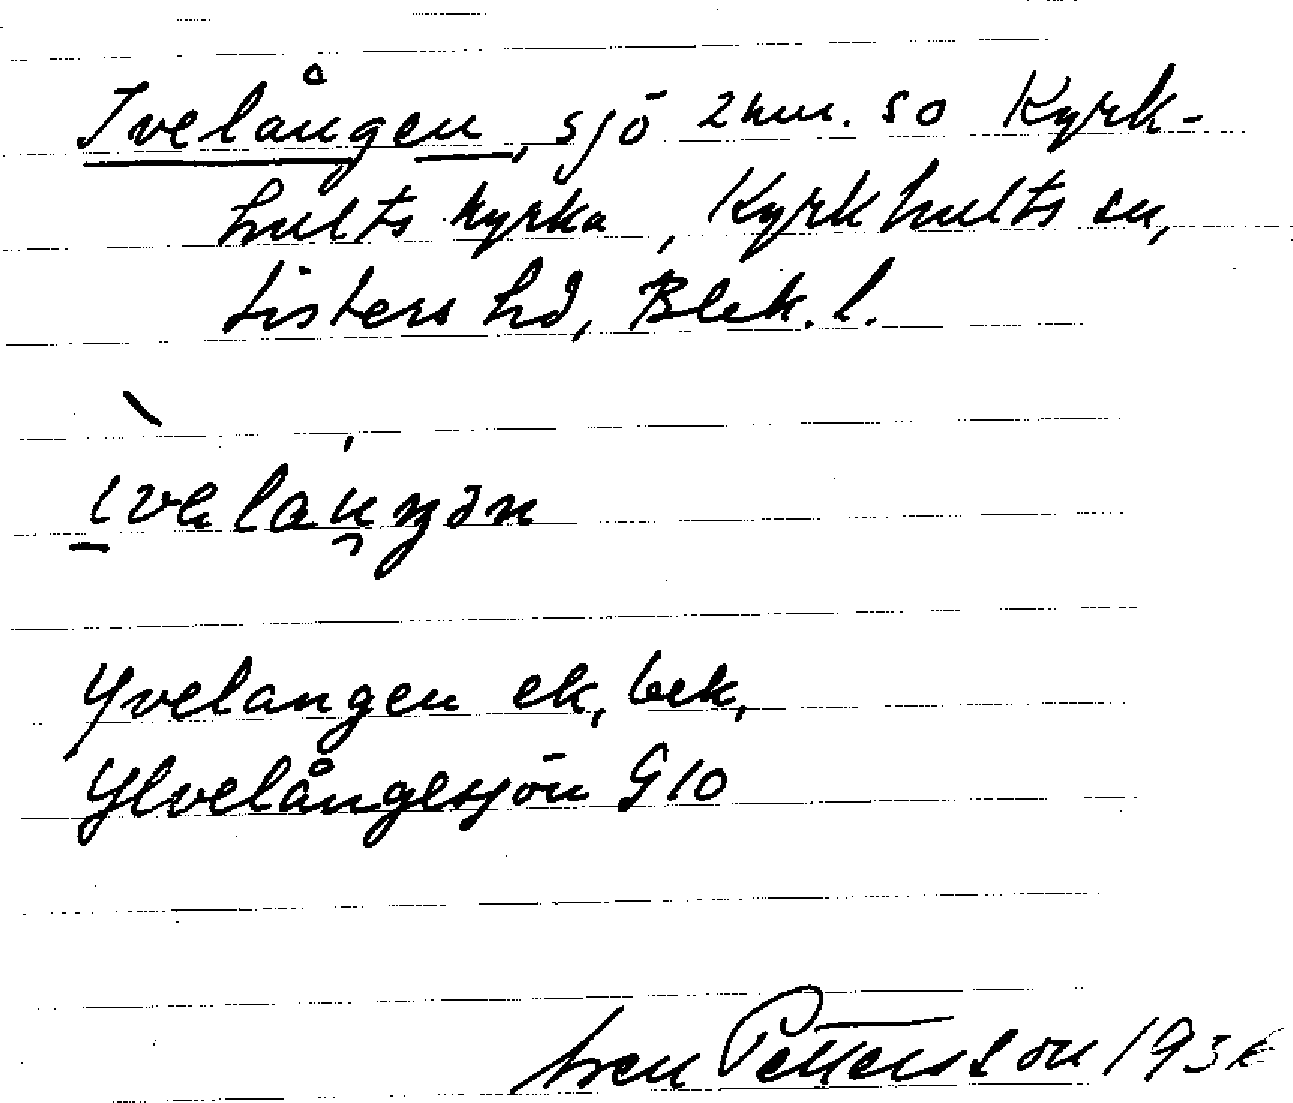 Ivelången, sjö 2 km. so Kyrk-
hults kyrka, Kyrkhults sn,
Listers hd, Blek. l.
Yvelangen ek, bek,
Ylvelångesjön G10
Pettersson